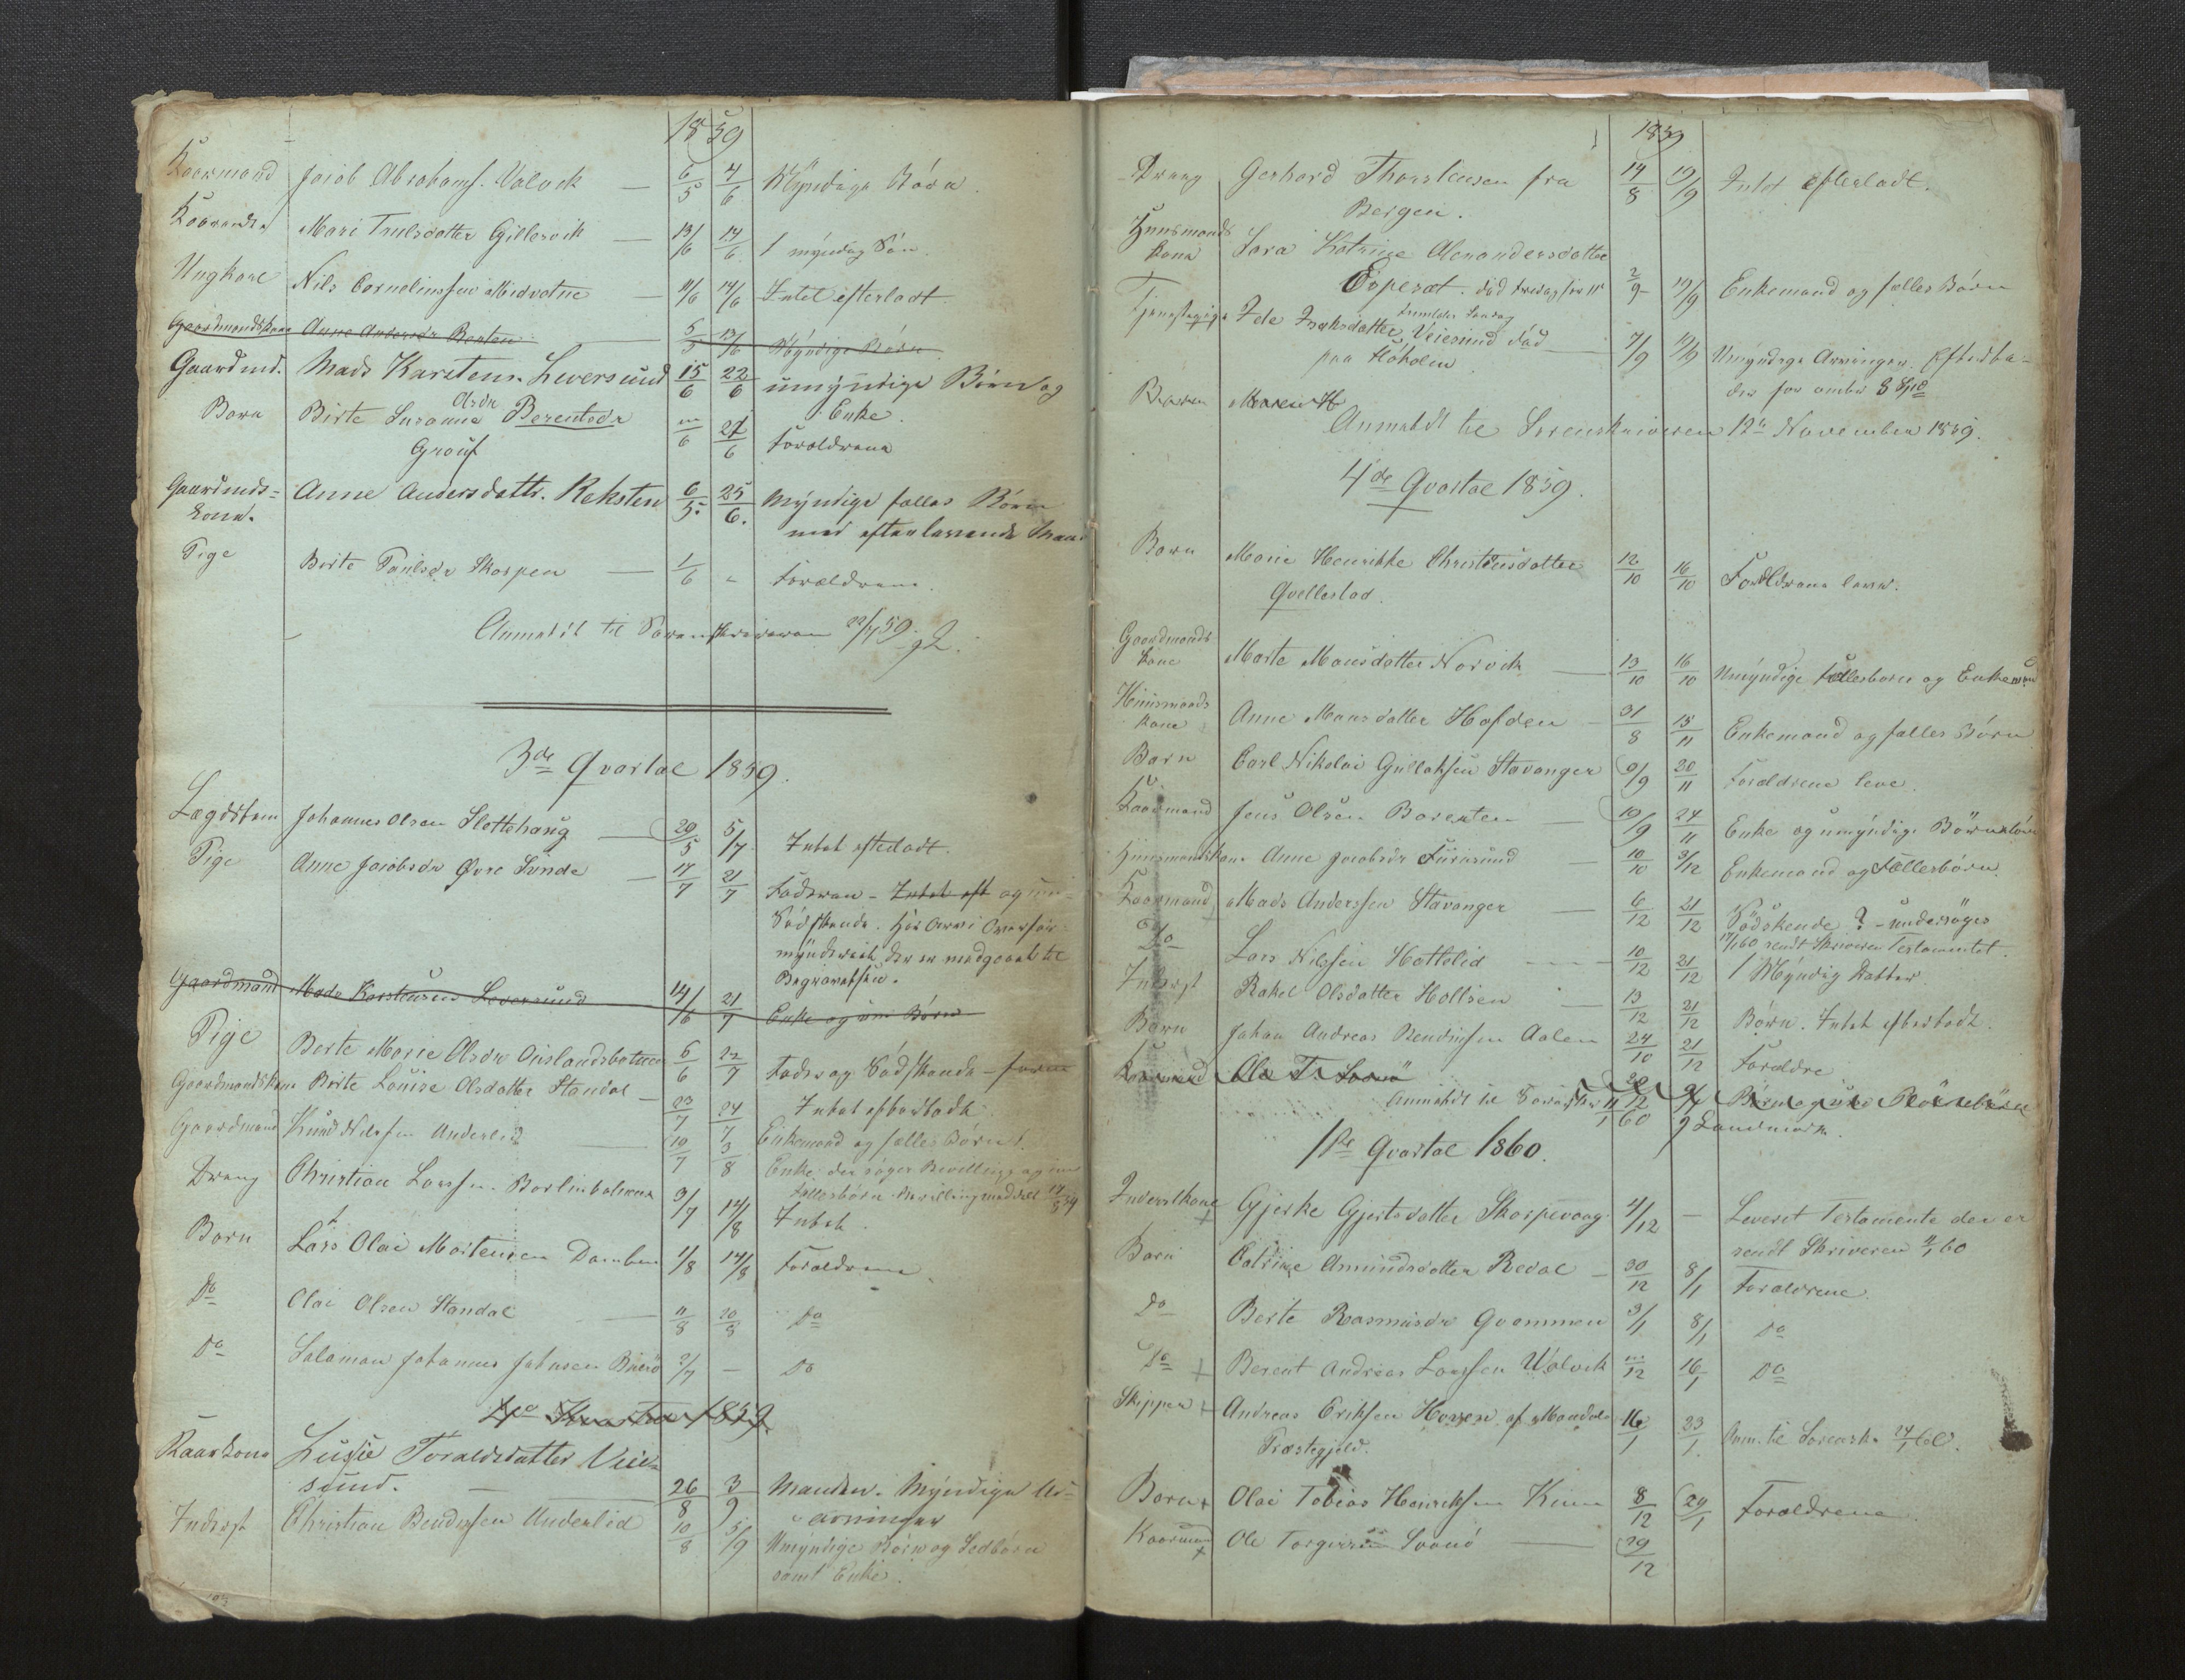 1859
Kaarmand Jacob Abrahams. Valvik — 6/5 4/6 Myndige Børn.
Kaarenke Mari Trulsdatter Gillesvik — 13/6 14/6 1 myndig Søn.
Ungkarl Nils Cornelinssen Midvatne — 11/6 14/6 Intet efterladt.
Gaardmandskone Anne Andersdr Rexten — 5/5 13/6 Myndige Børn
Gaardmd. Mads Karstens. Leversund 15/6 22/6 umyndige Børn og
Enke.
Barn Birte Susanne Olsdr Berentsdr /6 27/6 Forældrene
Grouf
Gaardmds- Anne Andersdattr. Reksten 6/5. 25/6. Myndige fælles Børn
kone. med efterlevende Mand
Pige Birte Paulsdr Skorpen — 1/6 " Forældrene.
Anmeldt til Sorenskriveren 22/7 59.
3de Qvartal 1859.
Lægdslem Johannes Olsen Slottehaug — 29/5 5/7 Intet efterladt.
Pige Anne Jacobsdr Øvre Sunde — 17/7 21/7 Faderen - Intet eft og
Sødskende. Har Arv i Overfor-
mynderiet, der er medgaaet til
Begravelsen.
Gaardmand Mads Karstensen Leversund 14/6 21/7 Enke og um Børn
Pige Berte Marie Olsdr Ouslandsbotnen 6/6 22/7 Fader og Sødskende
Gaardmandskone Birte Louise Olsdatter Standal — 23/7 24/7 Intet efterladt
Gaardmand Knud Nilssen Anderlid — 10/7 3/8 Enkemand og fælles Børn.
Dreng Christian Larssen Borlinbotnene 3/7 14/8 Enke der søger Bevilling og um
Fællesbørn. Bevilling meddelt
Intet.
Barn Lars Olai Mortensen Domben 1/8 14/8 Forældrene.
Do Olai Olsen Standal — 11/8 20/8 Do
Do Salamon Johannes Johnsen Buerø 2/7 — Do
4de Kvartal 1859.
Kaarkone Lussie Toraldsdatter Veie-
sund. — 26/8 3/9 Manden. Myndige Ar-
vinger
Inderst Christian Bendixsen Underlid 10/8 5/9 Umyndige Børn og Stedbørn
samt Enke.
1859
Dreng Gerhard Thorstensen fra 14/8 19/9 Intet efterladt.
Bergen.
Huusmands
kone Sara Katrine Alexandersdatter
Espeset. død fredag før 11te 2/9 19/9 Enkemand og fælles Børn
Tjenestepige Ide Isaksdatter Veiesund død — 7/9 19/9 Umyndige Arvinger. Efterla-
paa Høholm der for omtr 8 Spd
Barn Maren H
Anmeldt til Sorenskriveren 12te November 1859.
4de Qvartal 1859.
Barn Marie Henrikke Christensdatter 12/10 16/10 Forældrene lever.
Qvellestad.
Gaardmands-
kone Marte Monsdatter Norvik — 13/10 16/10 Umyndige Fællesbørn og Enkemand
Huusmands
kone Anne Monsdatter Hafden — 31/8 15/11 Enkemand og fælles Børn
Barn Carl Nikolai Gullaksen Stavanger 9/9 20/11 Forældrene leve.
Kaarmand Jens Olsen Barexten — 19/9 24/11 Enke og umyndige Børnebørn
Huusmandskone Anne Jacobsdr Furusund — 10/10 3/12 Enkemand og Fællesbørn.
Kaarmand Mads Anderssen Stavanger — 6/12 21/12 Sødskende ? - undersøges
17/1 60 sendt Skriveren Testamentet.
Do Lars Nilssen Hottelid — 10/12 21/12 1 Myndig Datter.
Inderst Rakel Olsdatter Holtsen — 13/12 21/12 Børn. Intet efterladt.
Barn Johan Andreas Bendixsen Aalen 24/10 21/12 Forældre
Kaarmand Ole T. Svanø
Anmeldt til Sorenskr 11/1 60 Landmark.
1ste Qvartal 1860.
Inderstkone + Gjerke Gjertsdatter Skorpevaag. 4/12 — Leveret Testamente der er
sendt Skriveren 11/1 60
Barn Catrine Amundsdatter Redal — 30/12 8/1 Forældrene.
Do Berte Rasmusdr Qvammen 3/1 8/1 Do
Do + Berent Andreas Larssen Valvik /12 16/1 Do
Skipper + Andreas Eriksen Hoven af Mandals 16/1 23/1. Anm. til Sorensk. 24/1 60.
Præstegjeld.
Barn + Olai Tobias Henriksen Kinn 8/12 29/1 Forældrene.
Kaarmand + Ole Torgiersen Svanø — 29/12